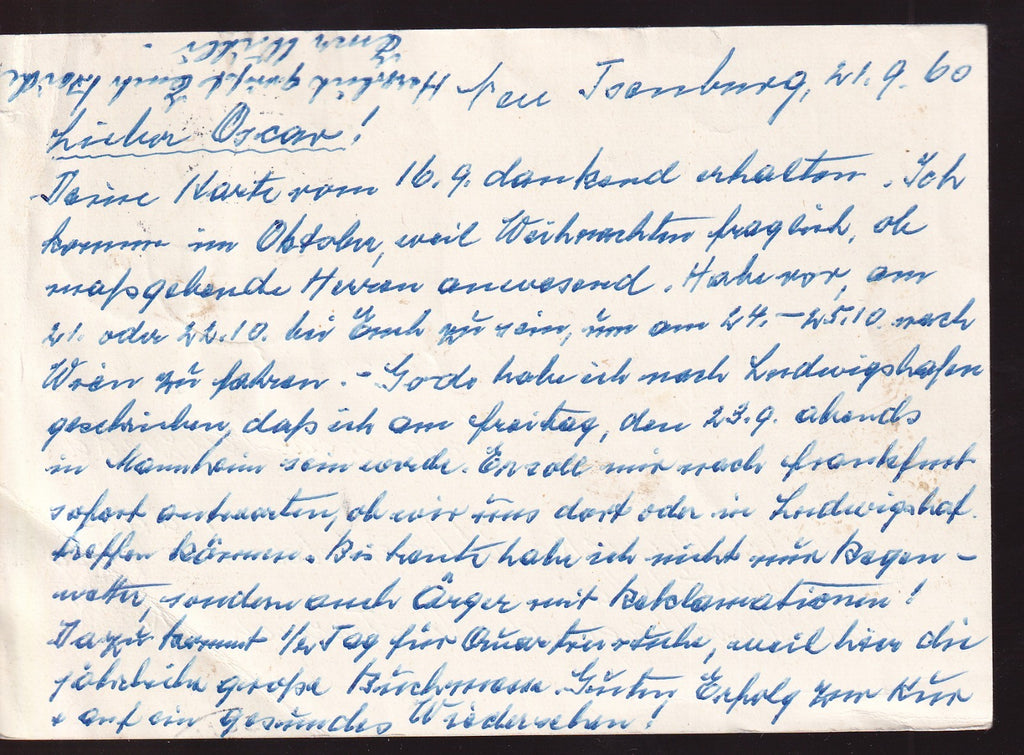 Neu Isenburg, 21.9.60
Lieber Oscar!
Deine Karte vom 16.9. dankend erhalten. Ich
komme im Oktober, weil Weihnachten fraglich, ob
maßgebende Herren anwesend. Habe vor, am
21. oder 22.10. bei Euch zu sein, um am 24.-25.10. nach
Wien zu fahren. - Godo habe ich nach Ludwigshafen
geschrieben, daß ich am Freitag, den 23.9. abends
in Mannheim sein werde. Er soll mir nach Frankfurt
sofort antworten, ob wir uns dort oder in Ludwigshaf.
treffen können. Bis heute habe ich nicht nur Regen-
wetter, sondern auch Ärger mit Reklamationen!
Dazu kommt 1/2 Tag für Quartiersuche, weil hier die
jährliche große Buchmesse. Guten Erfolg zur Kur
+ auf ein gesundes Wiedersehen!
Herzlich grüßt Euch beide
Euer Willi